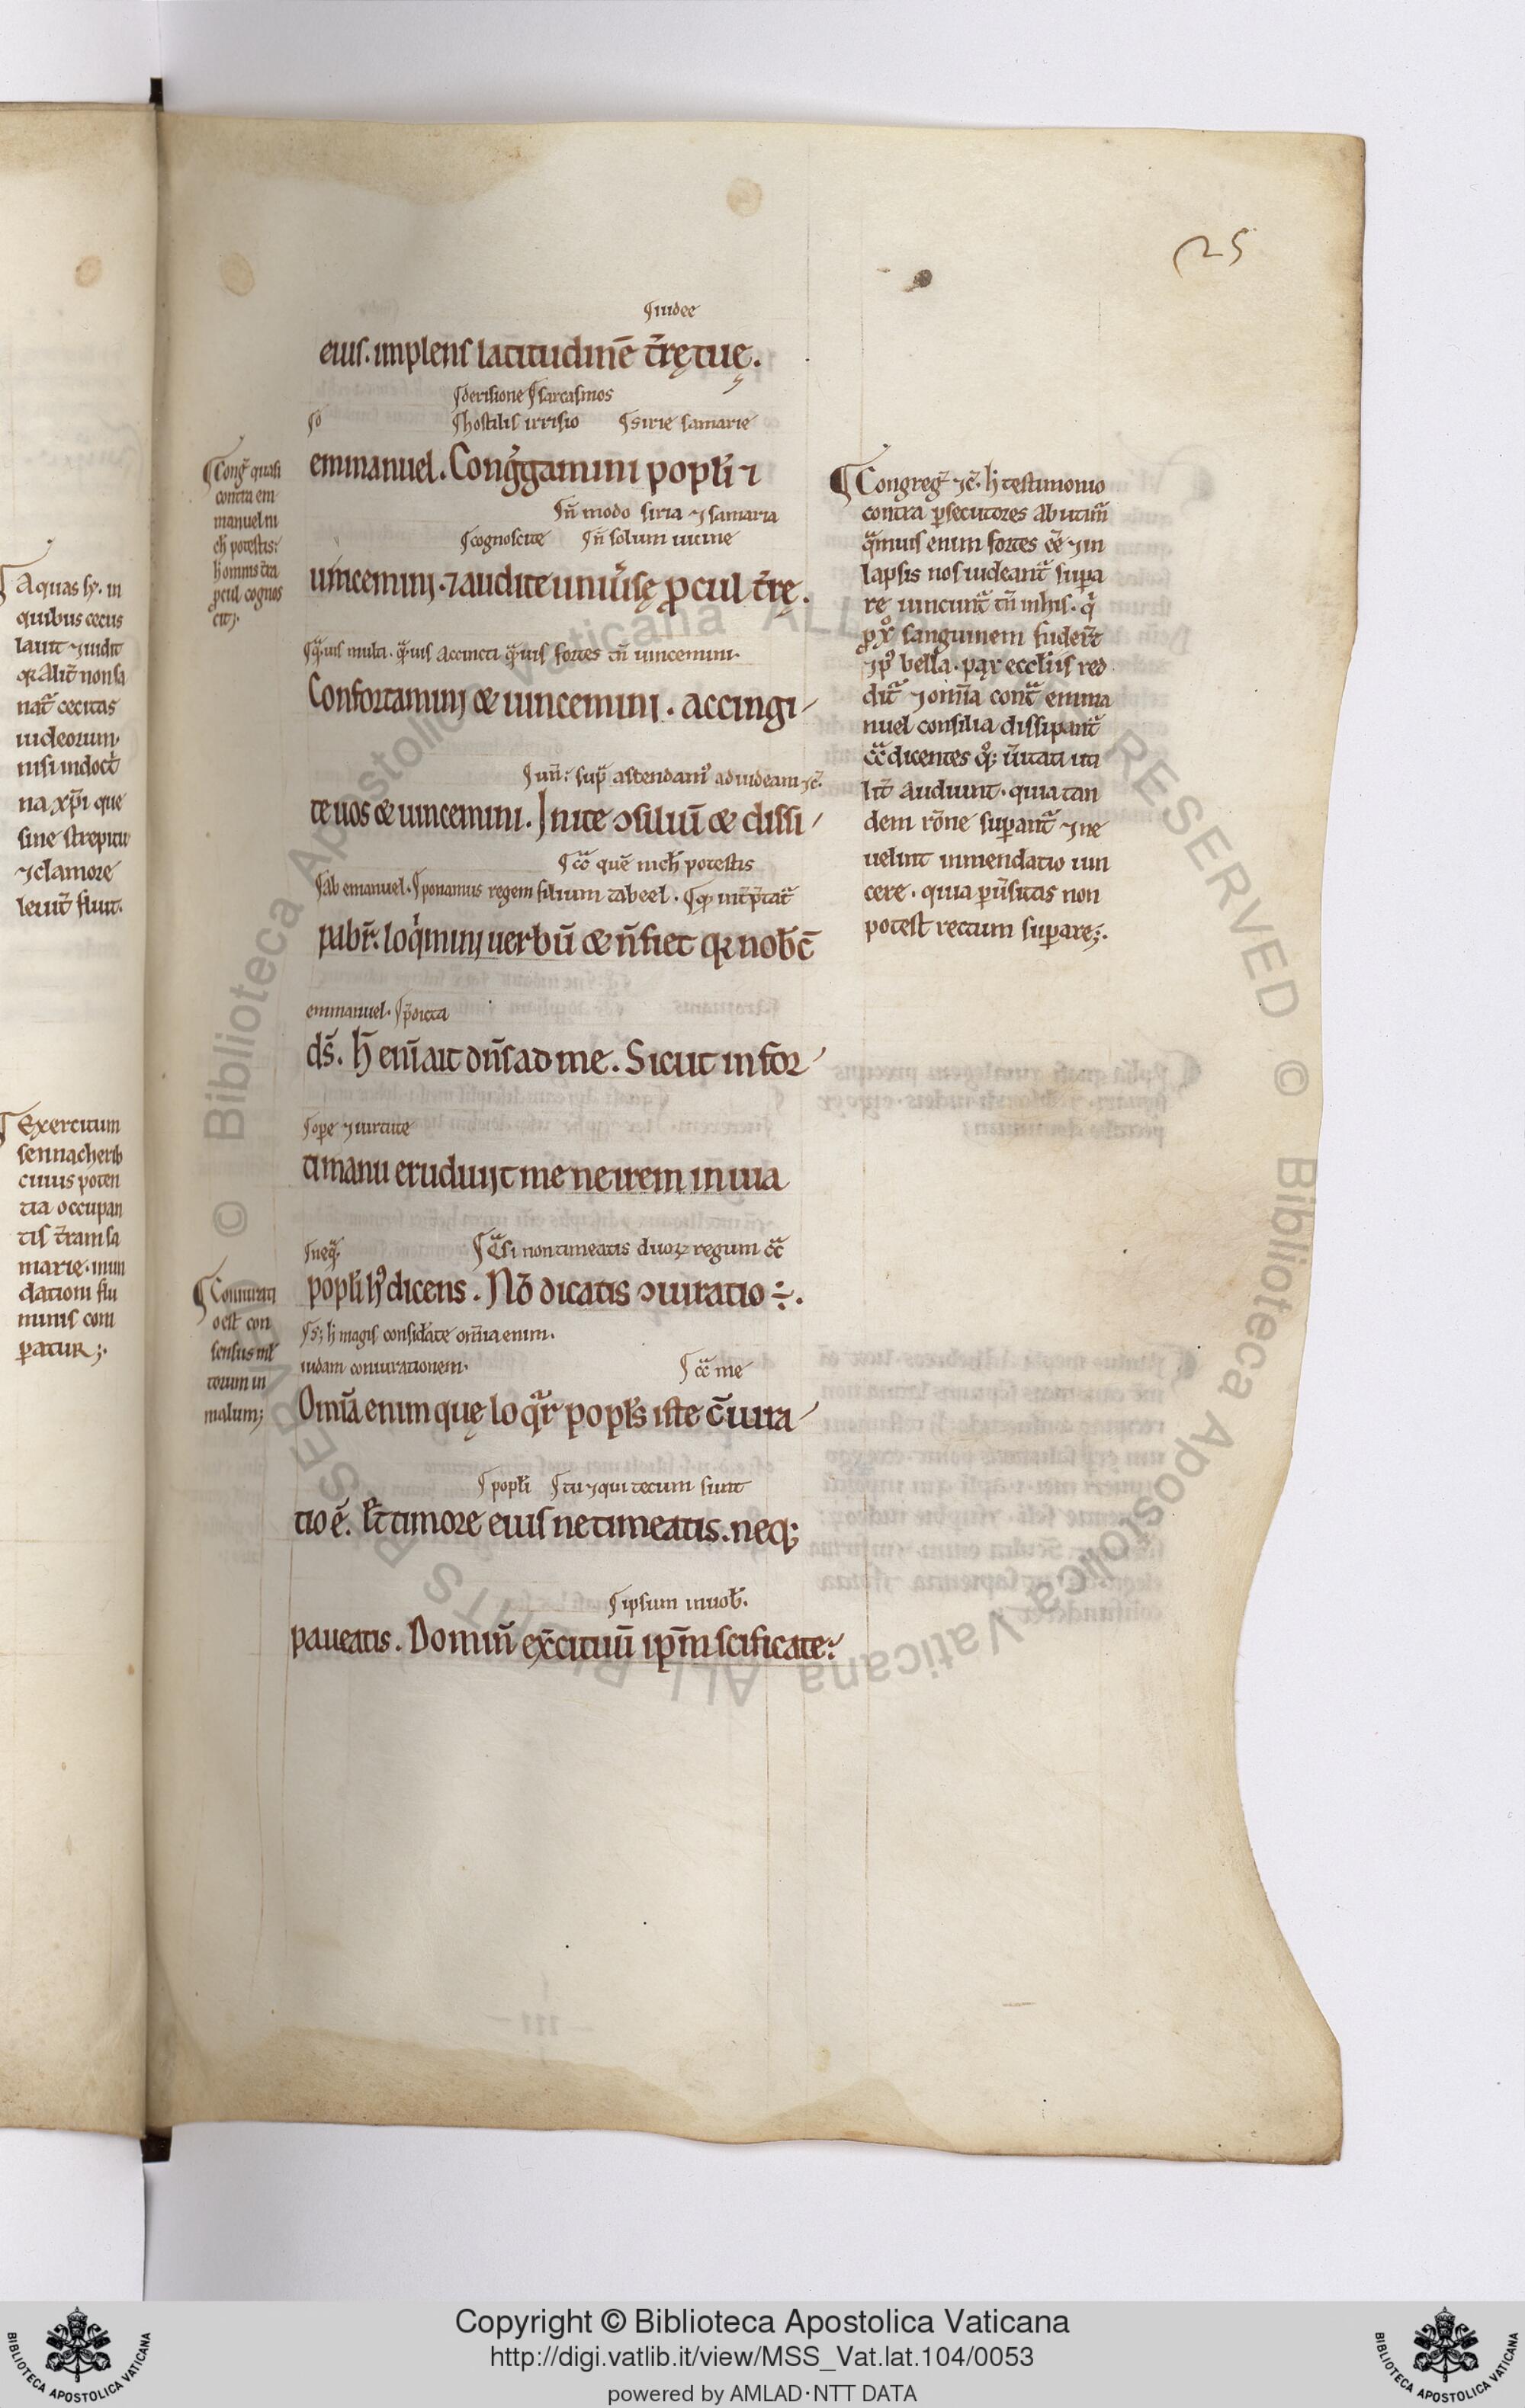 25
¶ iudee
eius. implens latitudinē t̄rę tuę.
¶ derisione ¶ sarcasmos
¶ o ¶ hostilis irrisio ¶ sirie samarie
emmanuel. Cong̃gamini popl̄i ⁊
¶ n̄ modo siria ⁊ samaria
¶ cognoscite ¶ n̄ solum uicine
uincemini. ⁊ audite uniũsę ꝓcul t̄rę.
¶ q̃uis multi. q̃uis accincti q̃uis fortes tn̄ uincemini.
Confortamini & uincemini. accingi
¶ un̄: sup̃ ascendam᷒ ad iudeam ⁊c̃.
te uos & uincemini. Inite ↄsiliū & dissi
¶ c̃c̃ quē nich̄ potestis
¶ ab emanuel. ¶ ponamus regem filium tabeel. ¶ qđ int̃p̃tat̃
pabit̃. loq̇mini uerbū & n̄ fiet qꝛ nob̄c̄
emmanuel. ¶ p̃dicta
ds̄. h̄ eni̅ ait dn̄s ad me. Sicut in for
¶ ope ⁊ uirtute
ti manu erudiuit me ne irem in uia
¶ neq̃. ¶ c̃si non timeatis duoꝝ regum c̃c̃
popl̄i h᷒ dicens. Nō dicatis ↄiuratio ÷.
¶ s; h̄ magis consid̃ate om̄ia enim.
iudam coniurationem. ¶ c̃c̃ me
Om̄ia enim quę loq̃r popl̄s iste c̄iura
¶ popl̄i ¶ tu ⁊ qui tecum sunt
tio ē. Et timore eius ne timeatis. neq;
¶ ipsum in uob̄.
paueatis. Domin̄ ex̃cituū ip̄m sc̄ificate.
¶ Cong̃ quasi
contra em
manuel ni
ch̄ potestis:
h̄ omnis t̃ra
ꝓcul cognos
cit;.
¶ Coniurati
o est con
sensus ml̃
torum in
malum;
¶ Congreg̃ ⁊c̃. h̄ testimonio
contra ꝑsecutores abutim̃
q̃muis enim fortes ēē ⁊ in
lapsis nos uideant̃ supa
re uincunt̃ tn̄ in his. q̇
ꝓ x᷒ sanguinem fuder̃t
⁊ p᷒ bella. pax eccl̄iis red
dit̃ ⁊ om̄ia cont̃ emma
nuel consilia dissipant̃
c̃c̃dicentes q᷒; ũitati uti
lit̃ audiunt. quia tan
dem rōne supant̃ ⁊ ne
uelint in mendatio uin
cere. quia puũsitas non
potest rectum supare;.
¶ Aquas sy. in
quibus cecus
lauit ⁊ uidit
qꝛ alit̃ non sa
nat̃ cecitas
iudeorum.
nisi in doct̃
na xp̄i que
sine strepitu
⁊ clamore
leuit̃ fluit.
¶ Exercitum
sennacherib
cuius poten
tia occupan
tis t̃ram sa
marie. inun
dationi flu
minis com
ꝑatur;.
Copyright © Biblioteca Apostolica Vaticana
http://digi.vatlib.it/view/MSS_Vat.lat.104/0053
powered by AMLAD·NTT DATA
BIBLIOTECA APOSTOLICA VATICANA
BIBLIOTECA APOSTOLICA VATICANA
© Biblioteca Apostolica Vaticana ALL RIGHTS RESERVED © Biblioteca Apostolica Vaticana ALL RIGHTS RESERVED